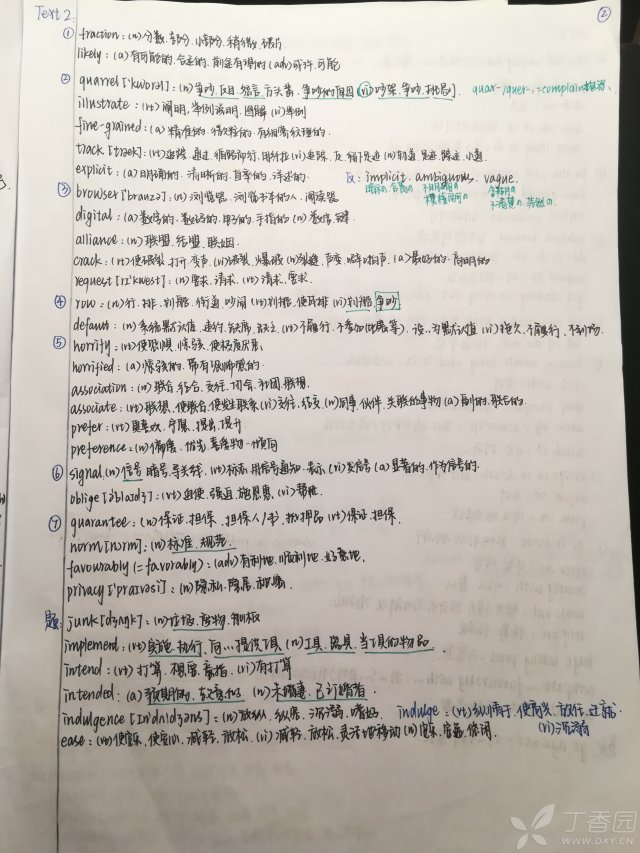 Text 2. ②
① fraction: (n) 分数. 部分. 小部分. 稍微. 碎片
likely: (a) 有可能的. 合适的. 前途有望的 (adv) 或许. 可能
② quarrel ['kwɔrəl]: (n) 争吵. 反目. 怨言. 争吵的原因 (vi) 吵架. 争吵. 挑剔. quar-/quer-, =complain 抱怨.
illustrate: (vt) 阐明. 举例说明. 图解 (vi) 举例
fine-grained: (a) 精准的. 细粒的. 有细密纹理的.
track [træk]: (vt) 追踪. 通过. 循路而行. 用纤拉 (vi) 追踪. 足迹 (n) 轨道. 足迹. 踪迹. 小道.
explicit: (a) 明确的. 清晰的. 直率的. 详述的. 反: implicit. ambiguous. vague.
暗示的. 含蓄的 模棱两可的 含糊的
③ browser ['braʊzə]: (n) 浏览器. 浏览书本的人. 阅读器
digital: (a) 数字的. 数码的. 电子的. 手指的 (n) 数字. 键.
alliance: (n) 联盟. 结盟. 联姻.
crack: (vt) 使破裂. 打开. 变声 (vi) 破裂. 爆裂 (n) 裂缝. 声变. 噼啪声. (a) 最好的. 高明的
request [rɪ'kwest]: (n) 要求. 请求. (vt) 请求. 要求.
④ row: (n) 行. 排. 划船. 街道. 吵闹 (vt) 划船. 使成排 (vi) 划船. 争吵
default: (n) 系统默认值. 违约. 缺席. 缺乏. (vt) 不履行. 不参加(比赛等). 设..为默认值 (vi) 拖欠. 不履行. 不到场.
⑤ horrify: (vt) 使恐惧. 惊骇. 使极度厌恶
horrified: (a) 惊骇的. 带有恐怖感的.
association: (n) 联合. 结合. 交往. 协会. 社团. 联想.
associate: (vt) 联想. 使联合. 使发生联系 (vi) 交往. 结交. (n) 同事. 伙伴. 关联的事物 (a) 副的. 联合的.
prefer: (vt) 更喜欢. 宁愿. 提出. 提升
preference: (n) 偏爱. 优先. 喜爱物. 倾向
⑥ signal. (n) 信号. 暗号. 导火线. (vt) 标志. 用信号通知. 表示 (vi) 发信号 (a) 显著的. 作为信号的.
oblige [ə'blaɪdʒ]: (vt) 迫使. 强迫. 施恩惠. (vi) 帮忙.
⑦ guarantee: (n) 保证. 担保. 担保人/书. 抵押品 (vt) 保证. 担保.
norm [nɔrm]: (n) 标准. 规范.
favourably (=favorably): (adv) 有利地. 顺利地. 好意地.
privacy ['praɪvəsi]: (n) 隐私. 隐居. 秘密.
题: junk [dʒʌŋk]: (n) 垃圾. 废物. 舢板
implement: (vt) 实施. 执行. 向...提供工具 (n) 工具. 器具. 当工具的物品.
intend: (vt) 打算. 想要. 意指. (vi) 有打算
intended: (a) 预期的. 故意的 (n) 未婚妻. 已订婚者.
indulgence [ɪn'dʌldʒəns]: (n) 放纵. 纵容. 沉溺. 嗜好. indulge: (vt) 纵情于. 使高兴. 放任. 迁就.
(vi) 沉溺
ease: (vt) 使安乐. 使安心. 减轻. 放松. (vi) 减轻. 放松. 灵活地移动 (n) 安乐. 安逸. 悠闲.
丁香园
WWW.DXY.CN